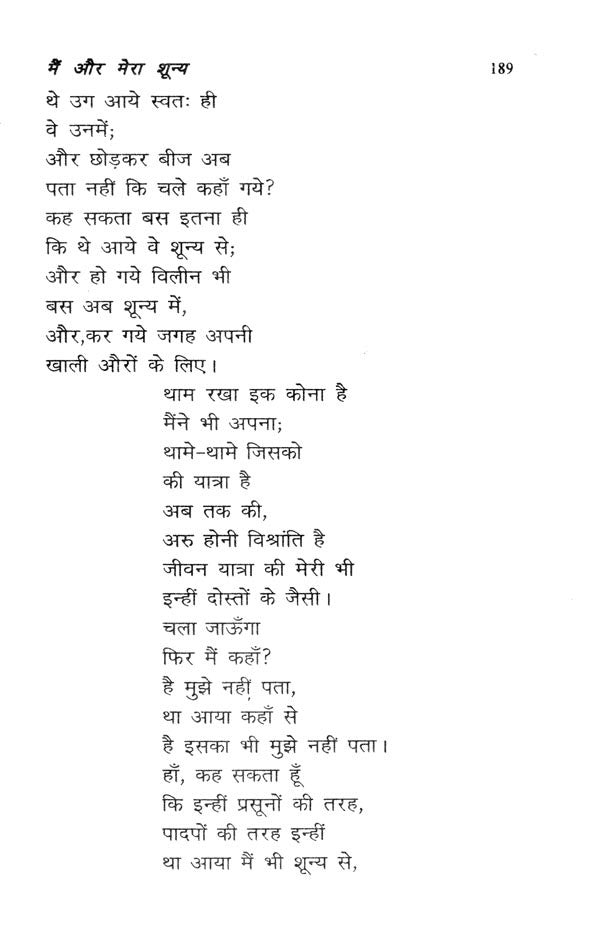 मैं और मेरा शून्य 189
थे उग आये स्वतः ही
वे उनमें;
और छोड़कर बीज अब
पता नहीं कि चले कहाँ गये?
कह सकता बस इतना ही
कि थे आये वे शून्य से;
और हो गये विलीन भी
बस अब शून्य में,
और,कर गये जगह अपनी
खाली औरों के लिए।
थाम रखा इक कोना है
मैंने भी अपना;
थामे-थामे जिसको
की यात्रा है
अब तक की,
अरु होनी विश्रांति है
जीवन यात्रा की मेरी भी
इन्हीं दोस्तों के जैसी।
चला जाऊँगा
फिर मैं कहाँ?
है मुझे नहीं पता,
था आया कहाँ से
है इसका भी मुझे नहीं पता।
हाँ, कह सकता हूँ
कि इन्हीं प्रसूनों की तरह,
पादपों की तरह इन्हीं
था आया मैं भी शून्य से,